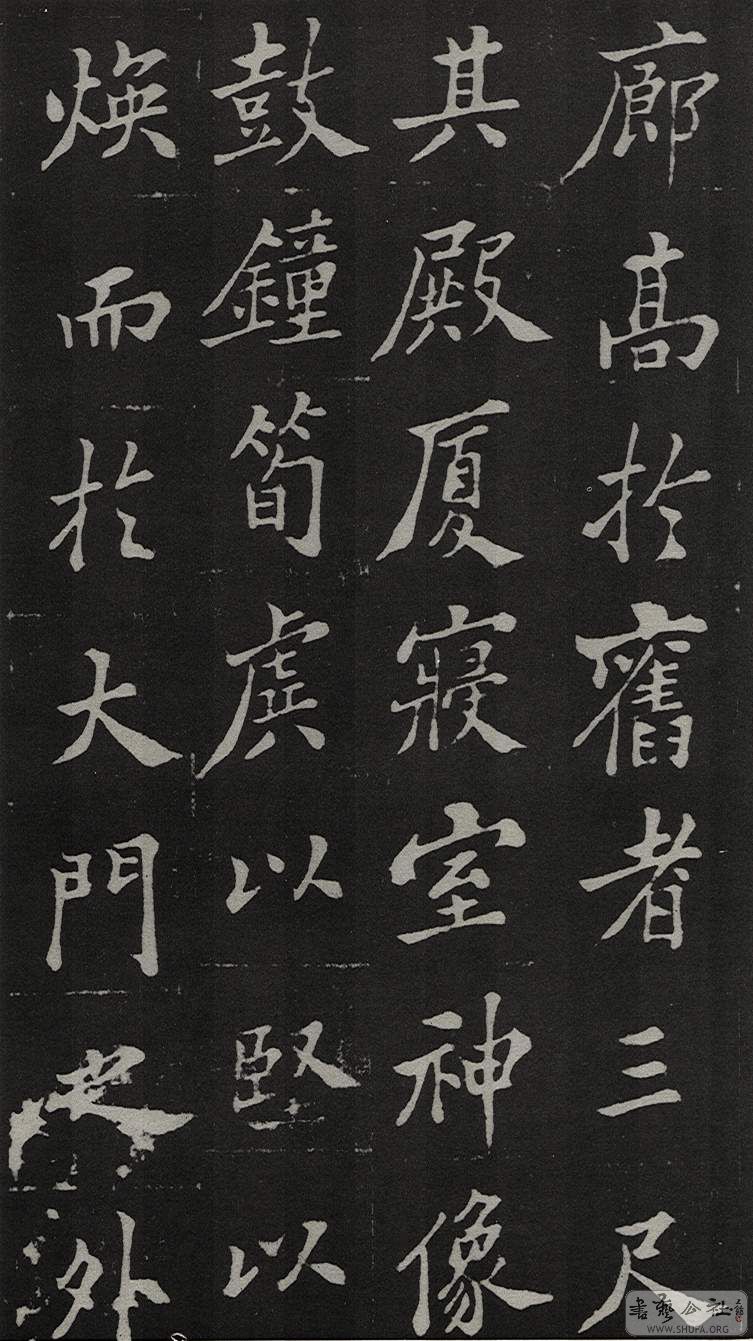 廊高於舊者三尺
其殿厦寢室神像
鼓鐘筍虡以堅以
焕而於大門之外
書藝公社
WWW.SHUFA.ORG